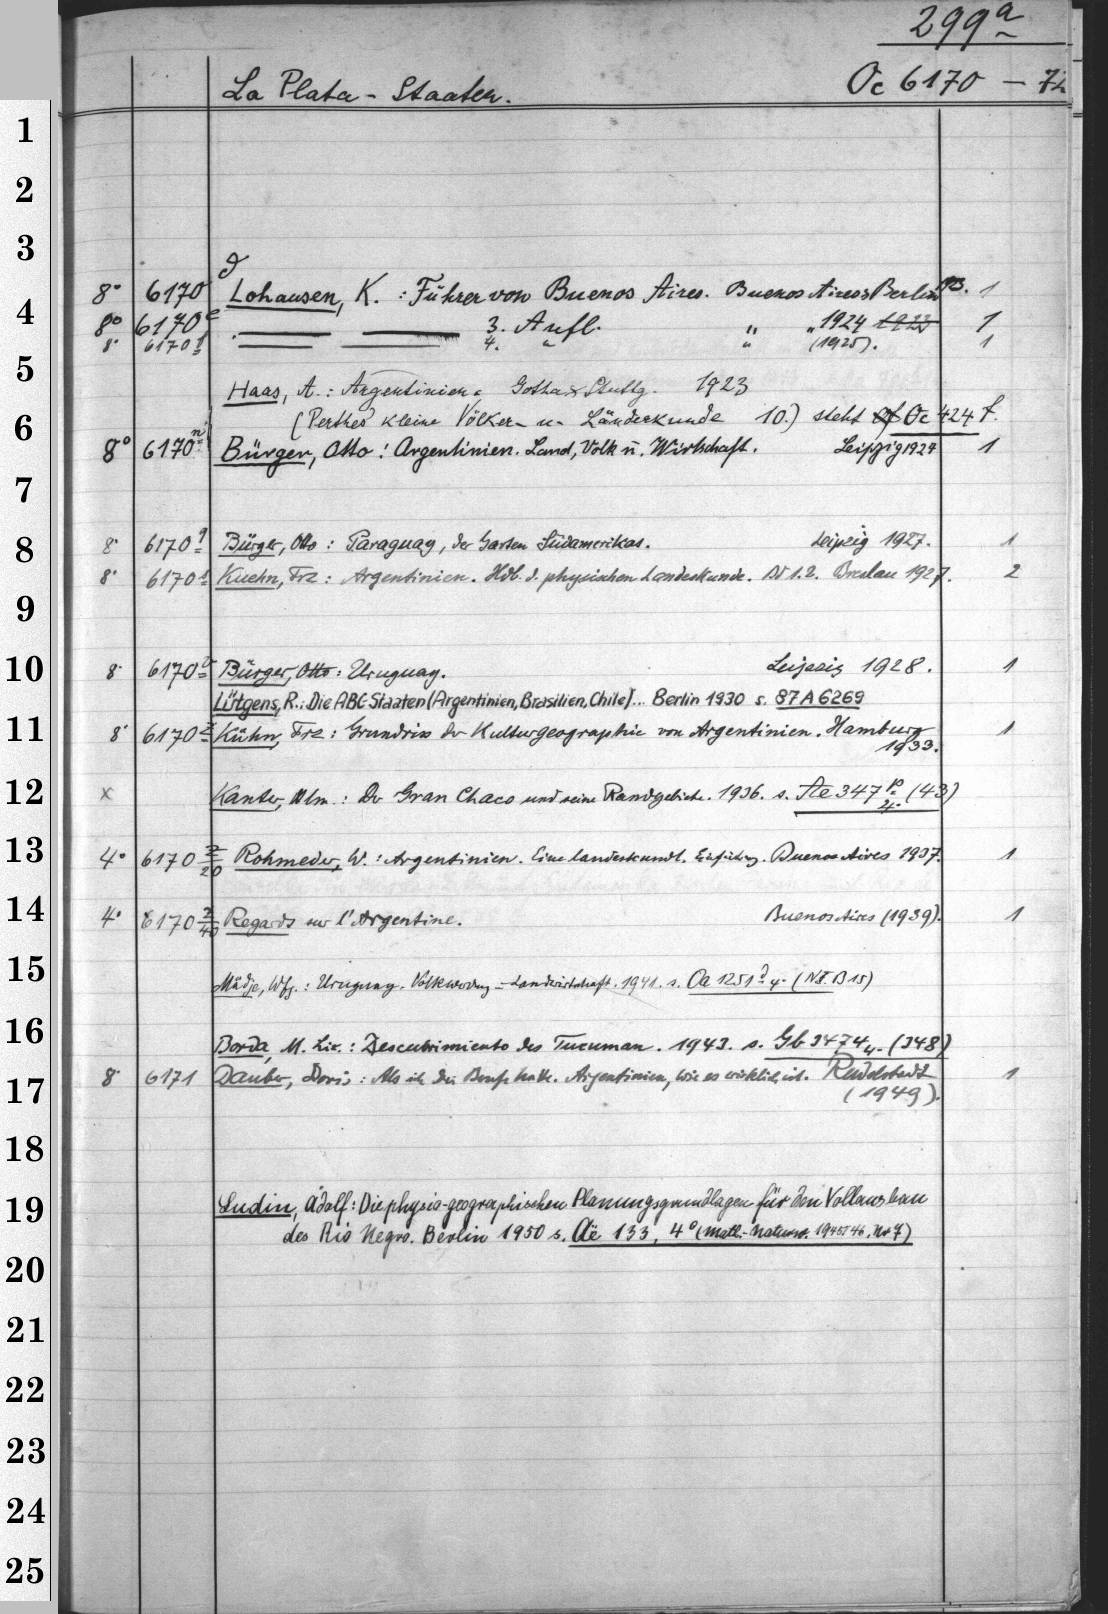 299a
La Plata - Staaten. Oc 6170 - 72
8° 6170 d Lohausen, K. : Führer von Buenos Aires. Buenos Aires & Berlin 1923. 1
8° 6170 e 3. Aufl. " " 1924 1923 1
8° 6170 f 4. " " (1925). 1
Haas, A. : Argentinien. Gotha & Stuttg. 1923
(Perthes' kleine Völker- u. Länderkunde 10.) steht Oc 424 f.
8° 6170 n Bürger, Otto : Argentinien. Land, Volk u. Wirtschaft. Leipzig 1924 1
8° 6170 q Bürger, Otto : Paraguay, der Garten Südamerikas. Leipzig 1927. 1
8° 6170 Kuehn, Frz : Argentinien. Hdb. d. physischen Landeskunde. Bd 1.2. Breslau 1927. 2
8° 6170 v Bürger, Otto : Uruguay. Leipzig 1928. 1
Lütgens, R.: Die ABC-Staaten (Argentinien, Brasilien, Chile)... Berlin 1930 s. 87 A 6269
8° 6170 z Kühn, Frz : Grundriss der Kulturgeographie von Argentinien. Hamburg 1
1933.
x Kanter, Hlm. : Der Gran Chaco und seine Randgebiete. 1936. s. Ae 347 p 4° (43)
4° 6170 z/20 Rohmeder, W. : Argentinien. Eine landeskundl. Einführung. Buenos Aires 1937. 1
4° 6170 z/40 Regards sur l'Argentine. Buenos Aires (1939). 1
Mädje, Wfg. : Uruguay. Volkwerdung - Landwirtschaft. 1941. s. Oa 1251 d 4° (N.F. B 15)
Borda, M. Liz. : Descubrimiento des Tucuman. 1943. s. Gb 3474 4° (348)
8° 6171 Dauber, Doris : Als ich drei Berufe hatte. Argentinien, wie es wirklich ist. Rudolstadt 1
(1949).
Ludin, Adolf: Die physio-geographischen Planungsgrundlagen für den Vollausbau
des Rio Negro. Berlin 1950 s. Aë 133, 4° (math.-naturw. 1945/46, Nr 7)
1
2
3
4
5
6
7
8
9
10
11
12
13
14
15
16
17
18
19
20
21
22
23
24
25